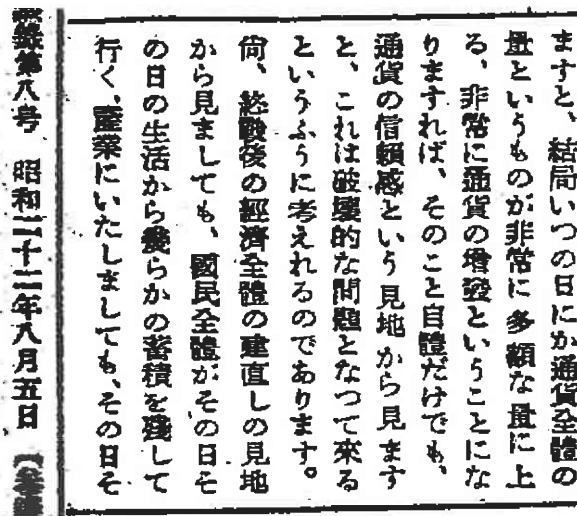 ますと、結局いつの日にか通貨全體の
量というものが非常に多額な量に上
る、非常に通貨の増發ということにな
りますれば、そのこと自體だけでも、
通貨の信頼感という見地から見ます
と、これは破壞的な問題となつて來る
というふうに考えれるのであります。
尙、終戰後の經濟全體の建直しの見地
から見ましても、國民全體がその日そ
の日の生活から幾らかの蓄積を殘して
行く、產業にいたしましても、その日そ
第八号 昭和二十二年八月五日